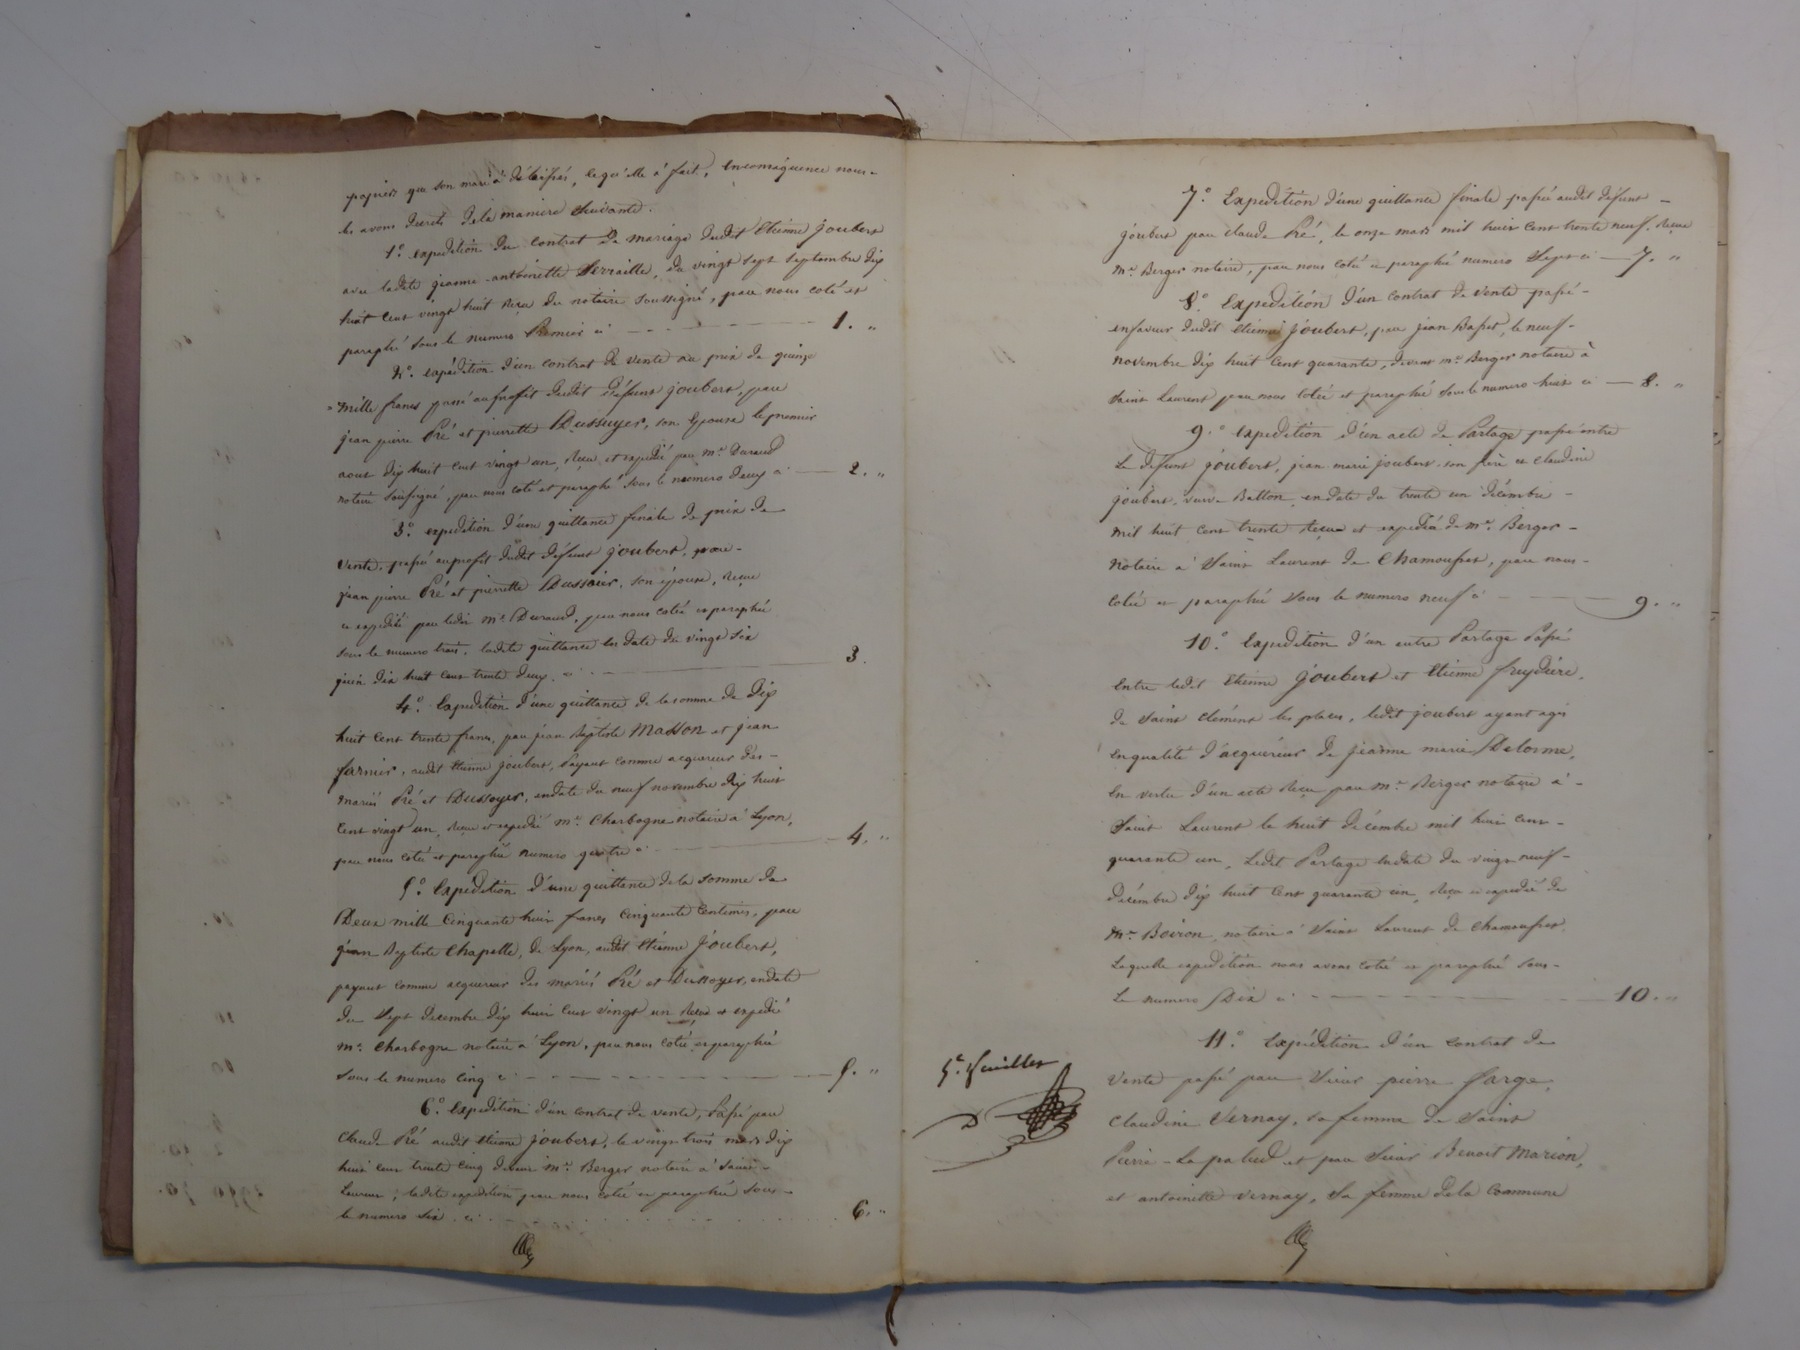 papiers que son mari à délaissés, ce qu'elle à fait, en conséquence nous
les avons décrits de la manière suivante.
1.° expédition du contrat de mariage dudit Etienne Joubert
avec ladite jeanne antoinette Serraille, du vingt sept septembre dix
huit cent vingt huit reçu du notaire soussigné, par nous coté et
paraphé sous le numero Premier ci 1. "
2.° expédition d'un contrat de vente au prix de quinze
mille francs passé au profit dudit défunt joubert, par
jean pierre Pré et pierrette Dussuyer, son épouse le premier
aout dix huit cent vingt un, reçu et expédié par Me. Durand
notaire soussigné, par nous coté et paraphé sous le numero deux ci 2. "
3.° expédition d'une quittance finale de prix de
vente, passé au profit dudit défunt joubert, par
jean pierre Pré et pierrette Dussoier, son épouse, reçue
et expédié par ledit Me. Durand, par nous cotée et paraphée
sous le numero trois, ladite quittance en date du vingt six
juin dix huit cent trente deux. ci 3.
4.° Expédition d'une quittance de la somme de dix
huit cent trente francs, par jean Baptiste Masson et jean
farnier, audit Etienne joubert, payant comme acquereur des
mariés Pré et Dussoyer, en date du neuf novembre dix huit
cent vingt un, reçue et expédié Me. Charbogne notaire à Lyon,
par nous cotée et paraphée numero quatre ci 4. "
5.° Expédition d'une quittance de la somme de
Deux mille cinquante huit francs cinquante centimes, par
jean Baptiste Chapelle, de Lyon, audit Etienne Joubert,
payant comme acquereur des mariés Pré et Dussoyer, en date
du Sept decembre dix huit cent vingt un reçue et expédié
Me. Charbogne notaire à Lyon, par nous cotée et paraphée
sous le numero cinq ci 5. "
6.° Expédition d'un contrat de vente, Passé par
Claude Pré audit Etienne joubert, le vingt trois mars dix
huit cent trente cinq devant Me. Berger notaire à Saint
Laurent, ladite expédition par nous cotée et paraphée sous
le numero six. ci 6. "
7.° Expédition d'une quittance finale passée audit défunt
joubert par claude Pré, le onze mars mil huit cent trente neuf, reçue
Me. Berger notaire, par nous cotée et paraphée numero Sept ci 7. "
8.° Expédition d'un contrat de vente passé
en faveur dudit Etienne Joubert, par jean Basset, le neuf
novembre dix huit cent quarante, devant Me. Berger notaire à
Saint Laurent par nous cotée et paraphé sous le numero huit ci 8. "
9.° Expédition d'un acte de Partage passé entre
Le défunt joubert, jean marie joubert, son frère et Claudine
joubert, veuve Batton, en date du trente un décembre
mil huit cent trente reçue et expédié de Me. Berger
notaire à Saint Laurent de Chamousset, par nous
cotée et paraphée sous le numero neuf ci 9. "
10.° Expédition d'un autre Partage Passé
entre ledit Etienne Joubert et Etienne fuydière,
de Saint Clément les places, ledit joubert ayant agi
en qualité d'acquéreur de jeanne marie Delorme,
en vertu d'un acte reçu par Me. Berger notaire à
Saint Laurent le huit décembre mil huit cent
quarante un, Ledit Partage en date du vingt neuf
décembre dix huit cent quarante un, reçu et expédié de
Me. Boiron, notaire à Saint Laurent de Chamousset,
Laquelle expédition nous avons cotée et paraphée sous
Le numero Dix ci 10. "
11.° Expédition d'un contrat de
vente passé par Sieur pierre farge,
Claudine Vernay, sa femme de Saint
Pierre-La palud et par Sieur Benoit Marion,
et antoinette Vernay, sa femme de la commune
5.e feuillet